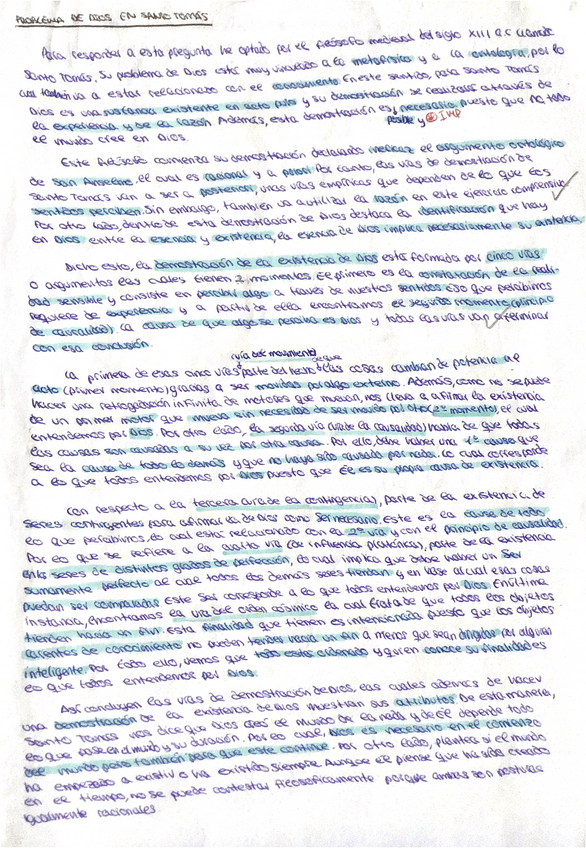 PROBLEMA DE DIOS EN SANTO TOMÁS
Para responder a esta pregunta he optado por el filósofo medieval del siglo XIII a.C llamado
Santo Tomás. Su problema de Dios está muy vinculado a la metafísica y a la ontología, por lo
cual también va a estar relacionado con el conocimiento. En este sentido, para Santo Tomás
Dios es una sustancia existente en acto puro y su demostración se realizará a través de
la experiencia y de la razón. Además, esta demostración es necesaria puesto que no todo
posible y IMP
el mundo cree en Dios.
Este filósofo comienza su demostración declarando ineficaz el argumento ontológico
de San Anselmo, el cual es racional y a priori. Por tanto, las vías de demostración de
Santo Tomás van a ser a posteriori, unas vías empíricas que dependen de lo que los
sentidos perciben. Sin embargo, también va a utilizar la razón en este ejercicio comprensivo
Por otro lado, dentro de esta demostración de Dios destaca la identificación que hay
en Dios entre la esencia y existencia, la esencia de Dios implica necesariamente su existencia.
Dicho esto, la demostración de la existencia de Dios está formada por cinco vías
o argumentos las cuales tienen 2 momentos. El primero es la constatación de la reali-
dad sensible y consiste en percibir algo a través de nuestros sentidos. Eso que percibimos
requiere de experiencia y a partir de ella encontramos el segundo momento (principio
de causalidad). La causa de que algo se perciba es Dios y todas las vías van a terminar
con esa conclusión.
(vía del movimiento) de que
La primera de esas cinco vías parte del hecho las cosas cambian de potencia al
acto (primer momento) gracias a ser movidas por algo externo. Además, como no se puede
hacer una retrogradación infinita de motores que muevan, nos lleva a afirmar la existencia
de un primer motor que mueva sin necesidad de ser movido por otro (2º momento), el cual
entendemos por Dios. Por otro lado, la segunda vía (vía de la causalidad) habla de que todas
las causas son causadas a su vez por otra causa. Por ello, debe haber una 1ª causa que
sea la causa de todo lo demás y que no haya sido causada por nada. Lo cual corresponde
a lo que todos entendemos por Dios puesto que Él es su propia causa de existencia.
Con respecto a la tercera (vía de la contingencia), parte de la existencia de
seres contingentes para afirmar la de Dios como Ser necesario. Este es la causa de todo
lo que percibimos, lo cual está relacionado con la 2ª vía y con el principio de causalidad.
Por lo que se refiere a la cuarta vía (de influencia platónica), parte de la existencia
en los seres de distintos grados de perfección, lo cual implica que debe haber un Ser
sumamente perfecto al cual todos los demás seres tiendan y en base al cual esas cosas
puedan ser comparadas. Este ser corresponde a lo que todos entendemos por Dios. En última
instancia, encontramos la vía del orden cósmico la cual trata de que todos los objetos
tienden hacia un fin. Esta finalidad que tienen es intencionada puesto que los objetos
carentes de conocimiento no pueden tender hacia un fin a menos que sean dirigidos por alguien
inteligente. Por todo ello, vemos que todo está ordenado y quien conoce su finalidad es
lo que todos entendemos por Dios.
Así concluyen las vías de demostración de Dios, las cuales además de hacer
una demostración de la existencia de Dios muestran sus atributos. De esta manera,
Santo Tomás nos dice que Dios creó el mundo de la nada y de él depende todo
lo que pasa en el mundo y su duración. Por lo cual, Dios es necesario en el comienzo
del mundo pero también para que este continúe. Por otro lado, plantea si el mundo
ha empezado a existir o ha existido siempre. Aunque él piense que ha sido creado
en el tiempo, no se puede contestar filosóficamente porque ambas son posturas
igualmente racionales.